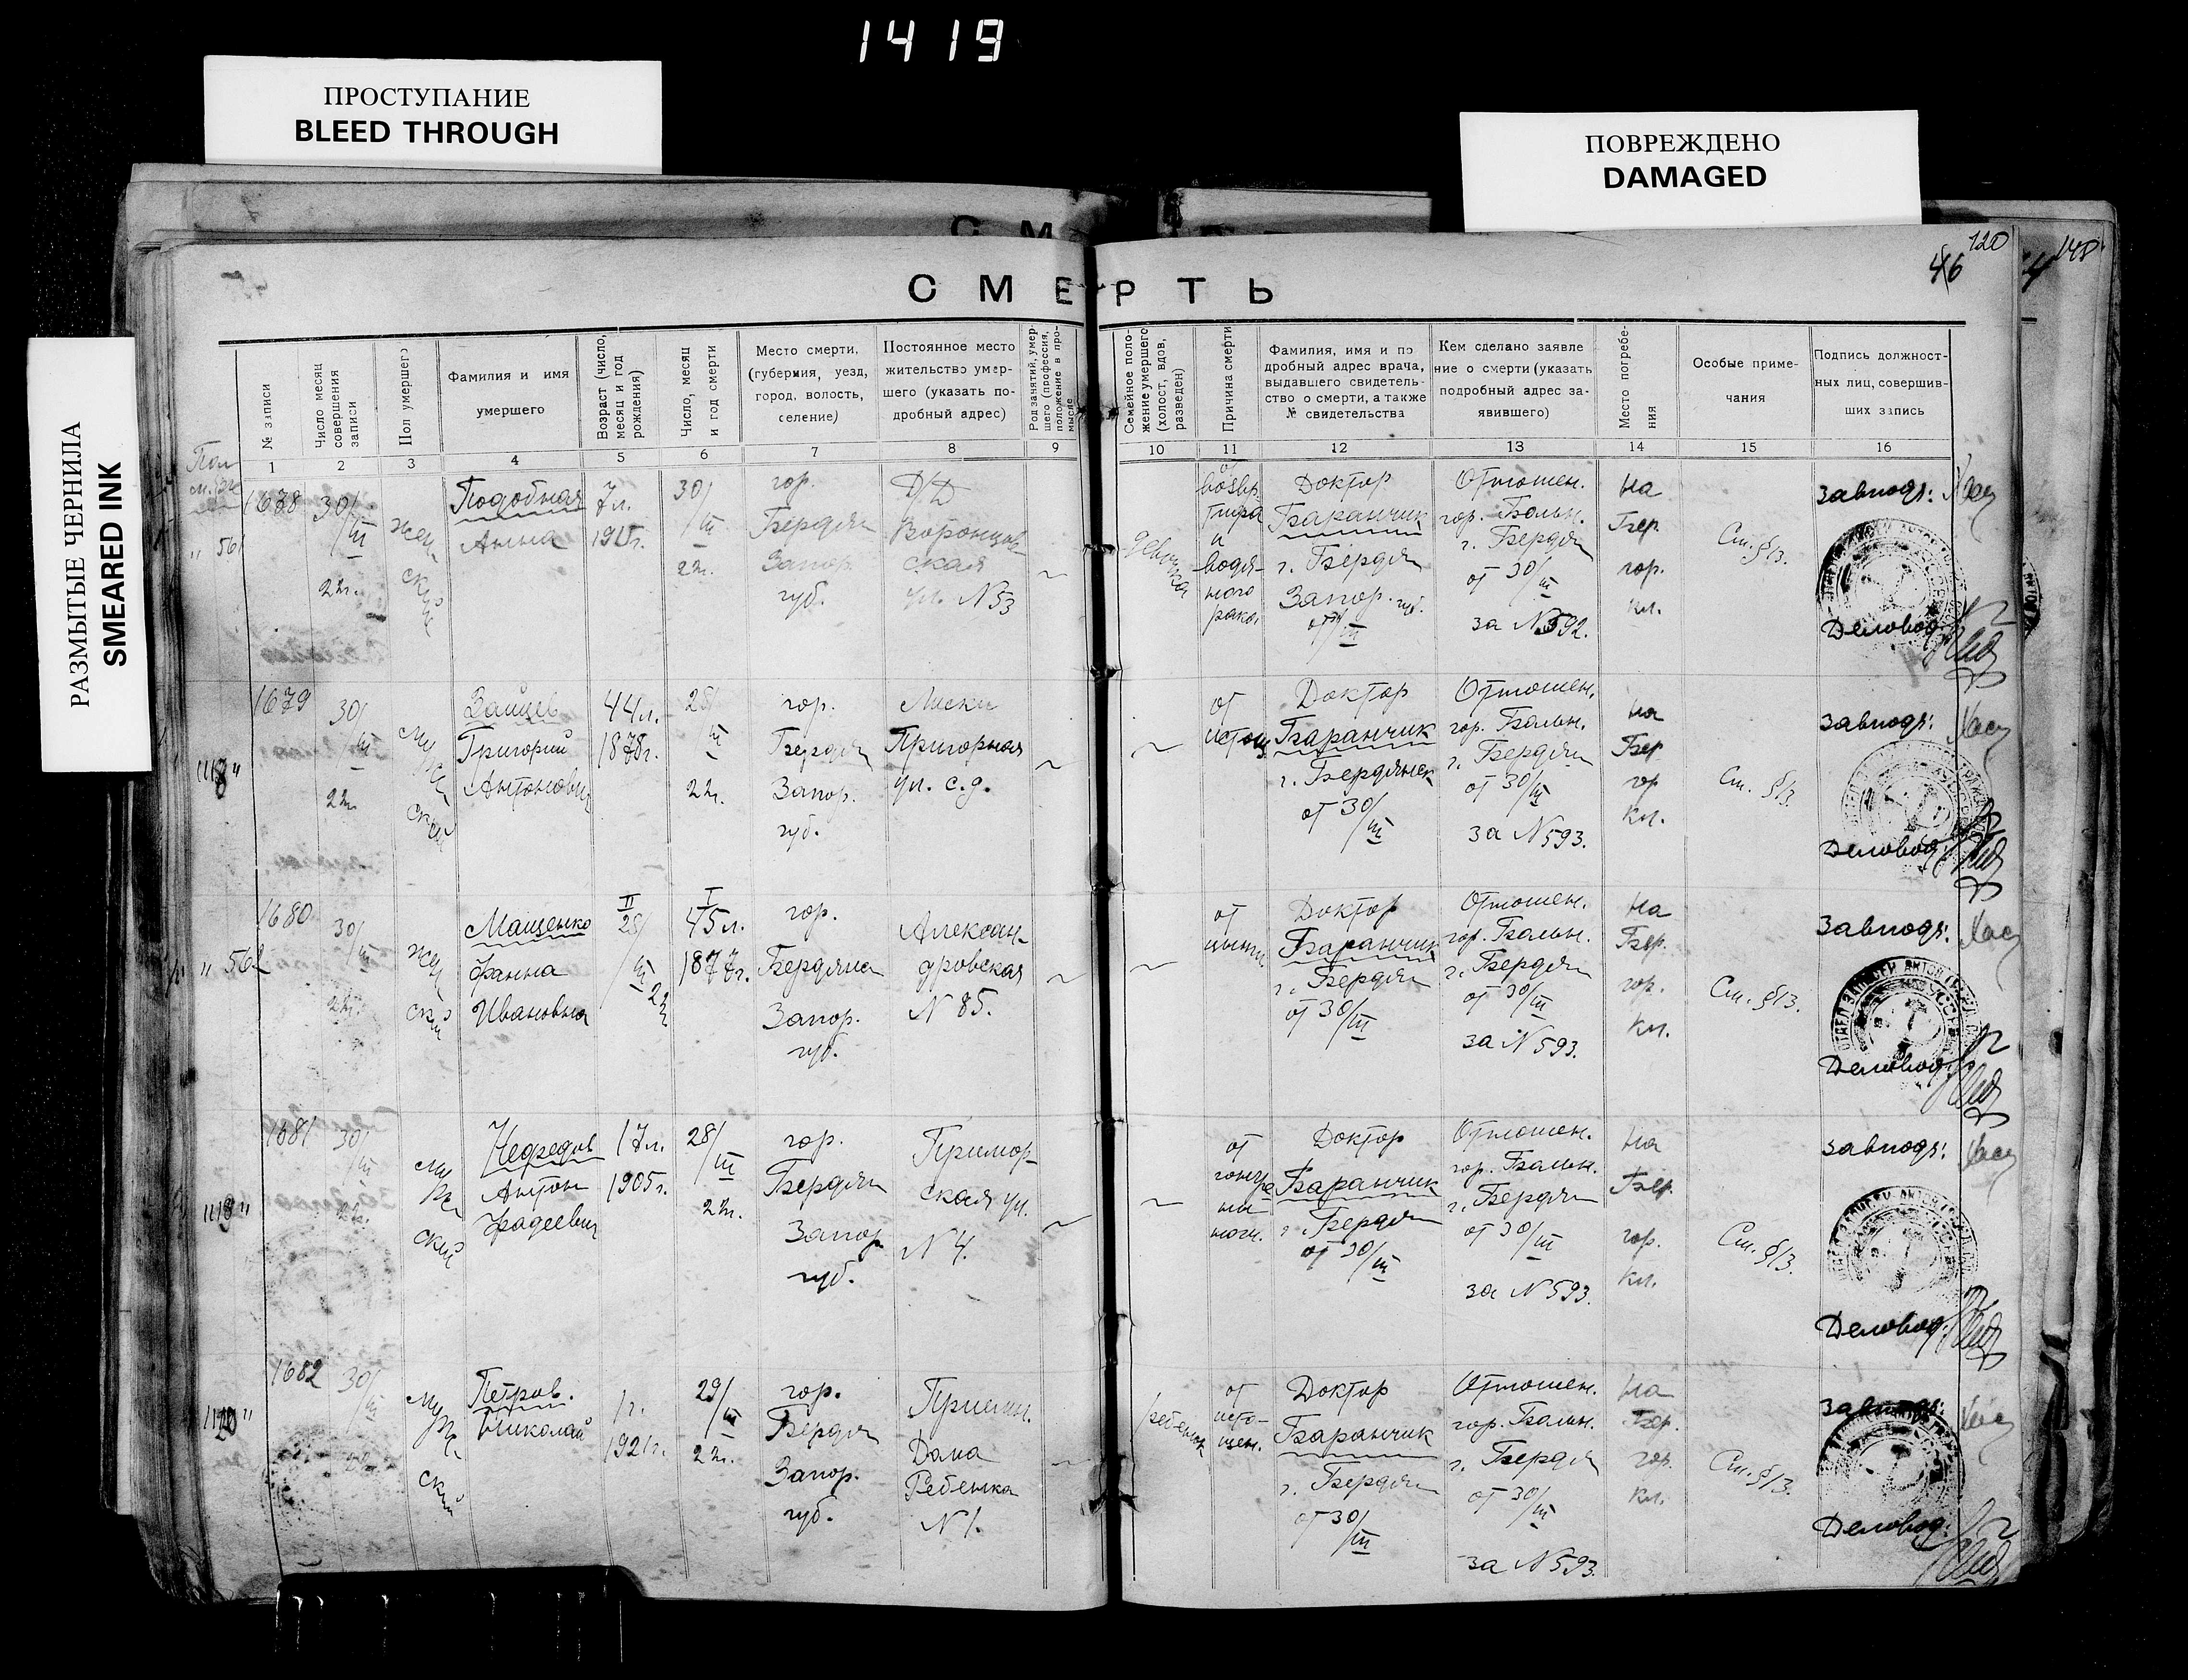 1419
ПРОСТУПАНИЕ
BLEED THROUGH
ПОВРЕЖДЕНО
DAMAGED
РАЗМЫТЫЕ ЧЕРНИЛА
SMEARED INK
120
46
СМЕРТЬ
№ записи
Число месяц
совершения
записи
Пол умершего
Фамилия и имя
умершего
Возраст (число,
месяц и год
рождения)
Число, месяц
и год смерти
Место смерти,
(губерния, уезд,
город, волость,
селение)
Постоянное место
жительство умер-
шего (указать по-
дробный адрес)
Род занятий, умер-
шего (профессия,
положение в про-
мысле
Семейное поло-
жение умершего
(холост, вдов,
разведен)
Причина смерти
Фамилия, имя и по
дробный адрес врача,
выдавшего свидетель-
ство о смерти, а также
№ свидетельства
Кем сделано заявле
ние о смерти (указать
подробный адрес за-
явившего)
Место погребе-
ния
Особые приме-
чания
Подпись должност-
ных лиц, совершив-
ших запись
1 2 3 4 5 6 7 8 9 10 11 12 13 14 15 16
1678
30/III
22г.
жен-
ский
Подобная
Анна
7л.
1915г.
30/
III
22г.
гор.
Бердян
Запор.
губ.
Д/Д
Воронцов
ская
ул. N 53
~
девочка
от
водян-
ного
рака.
Доктор
Баранчик
г. Бердян
Запор. губ.
Отношен.
гор. Больн.
г. Бердян
от 30/III
за N 592.
на
Бер.
гор.
кл.
См. §13.
Завподъ:
Деловод:
1679
30/
III
22г.
муж-
ский
Зайцев
Григорий
Антонович
44л.
1878г.
28/
III
22г.
гор.
Бердян
Запор.
губ.
Лиски
Пригорная
ул. с.д.
~
~
от
истощ
Доктор
Баранчик
г. Бердянск
от 30/
III
Отношен.
гор. Больн.
г. Бердян
от 30/III
за N 593.
на
Бер
гор
кл.
См. §13.
Завподъ:
Деловод:
1680
" 562
30/
III
22г.
жен
ский
Мащенко
Фанна
Ивановна
II
28/
III
22г
I
45л.
1877г.
гор.
Бердянс
Запор.
губ.
Алексан-
дровская
N 85.
~
~
от
цынги
Доктор
Баранчик
г. Бердян
от 30/III
Отношен.
гор. Больн.
г. Бердян
от 30/III
за N 593.
на
Бер.
гор.
кл.
См. §13.
Завподъ:
Деловод:
1681
30/
III
22г.
муж
ский
Нефедов
Антон
Фадеевич
17л.
1905г.
28/
III
22г.
гор.
Бердян
Запор
губ.
Примор-
ская ул.
N 4.
~
~
от
Доктор
Баранчик
г. Бердян
от 30/
III
Отношен.
гор. Больн.
г. Бердян
от 30/III
за N 593.
на
Бер.
гор.
кл.
См. §13.
Завподъ:
Деловод:
1682
30/
III
22г.
муж-
ский
Петров.
Николай
1г.
1921г.
29/
III
22г.
гор.
Бердян
Запор.
губ.
Приемн.
Дома
Ребенка
N 1.
~
ребенок
от
исто-
щен.
Доктор
Баранчик
г. Бердян
от 30/
III
Отношен.
гор. Больн.
г. Бердян
от 30/III
за N 593.
на
Бер.
гор.
кл.
См. §13.
Завподъ:
Деловод: